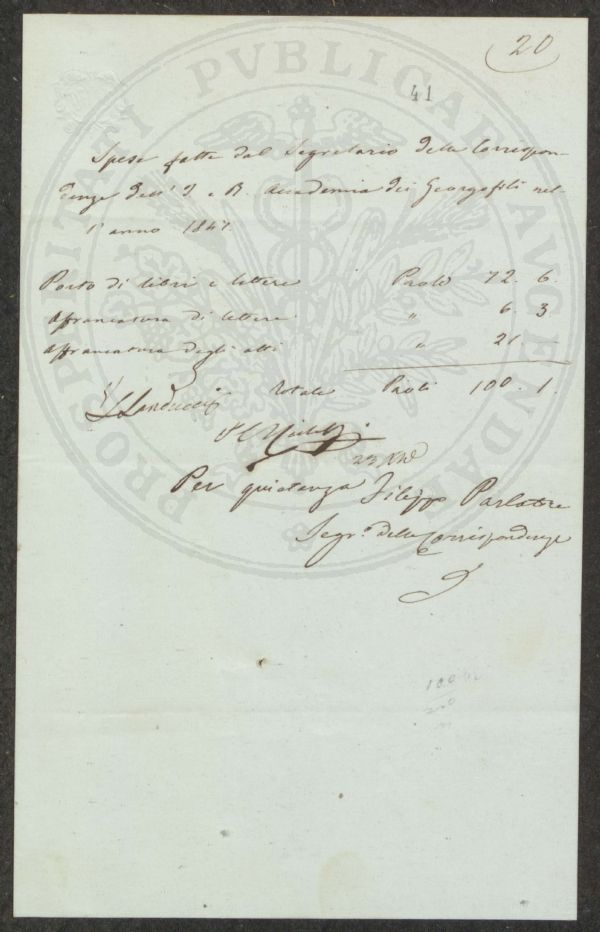 20
41
PROSPERITATI PVBLICAE AVGENDAE
Spese fatte dal Segretario delle Corrispon-
denze dell' I. e R. Accademia dei Georgofili nel-
l'anno 1847
Porto di libri e lettere Paoli 72. 6.
Affrancatura di lettere " 6. 3
Affrancatura degli atti " 21. —
Totale Paoli 100. 1.
Landucci
Per quietanza Filippo Parlatore
Segr.o delle Corrispondenze